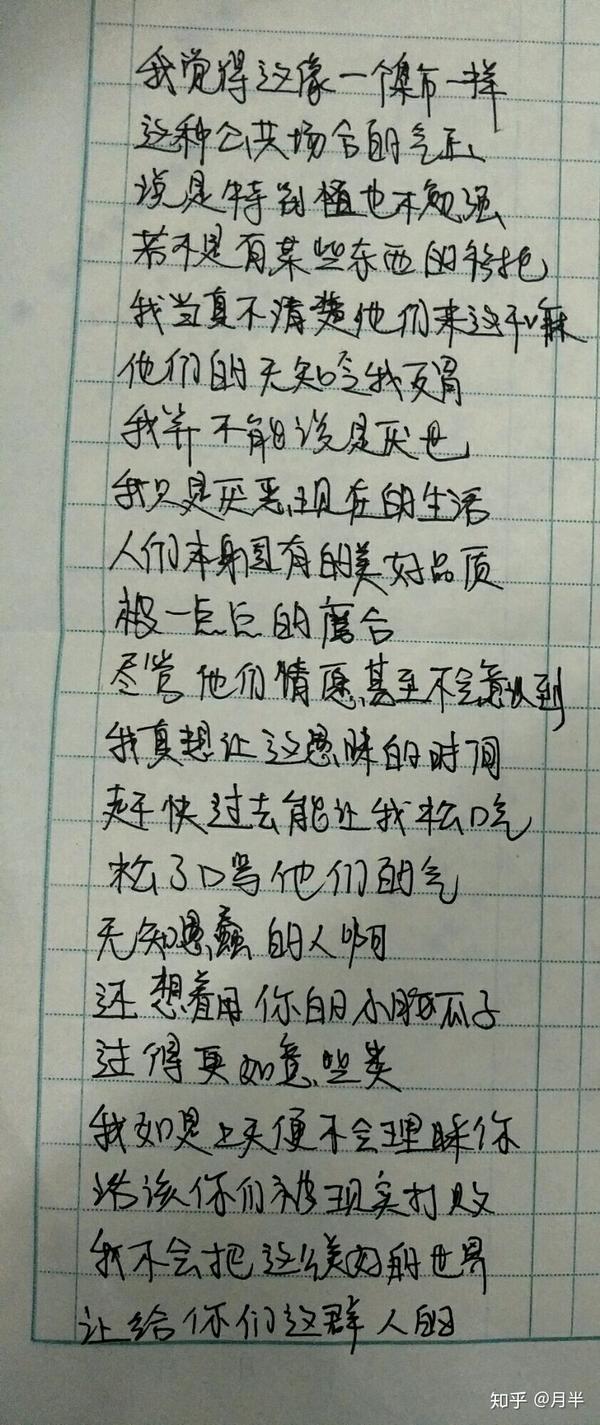 我觉得这像一个集市一样
这种公共场合的气氛
说是特别植也不勉强
若不是有某些东西的衬托
我当真不清楚他们来这干嘛
他们的无知令我反胃
我并不能说是厌世
我只是厌恶现在的生活
人们本身固有的美好品质
被一点点的磨合
尽管他们情愿甚至不会意识到
我真想让这愚昧的时间
赶快过去能让我松口气
松了口骂他们的气
无知愚蠢的人啊
还想着用你的小脑瓜子
过得更如意些类
我如是上天便不会理睬你
活该你们被现实打败
我不会把这么美好的世界
让给你们这群人的
知乎 @月半